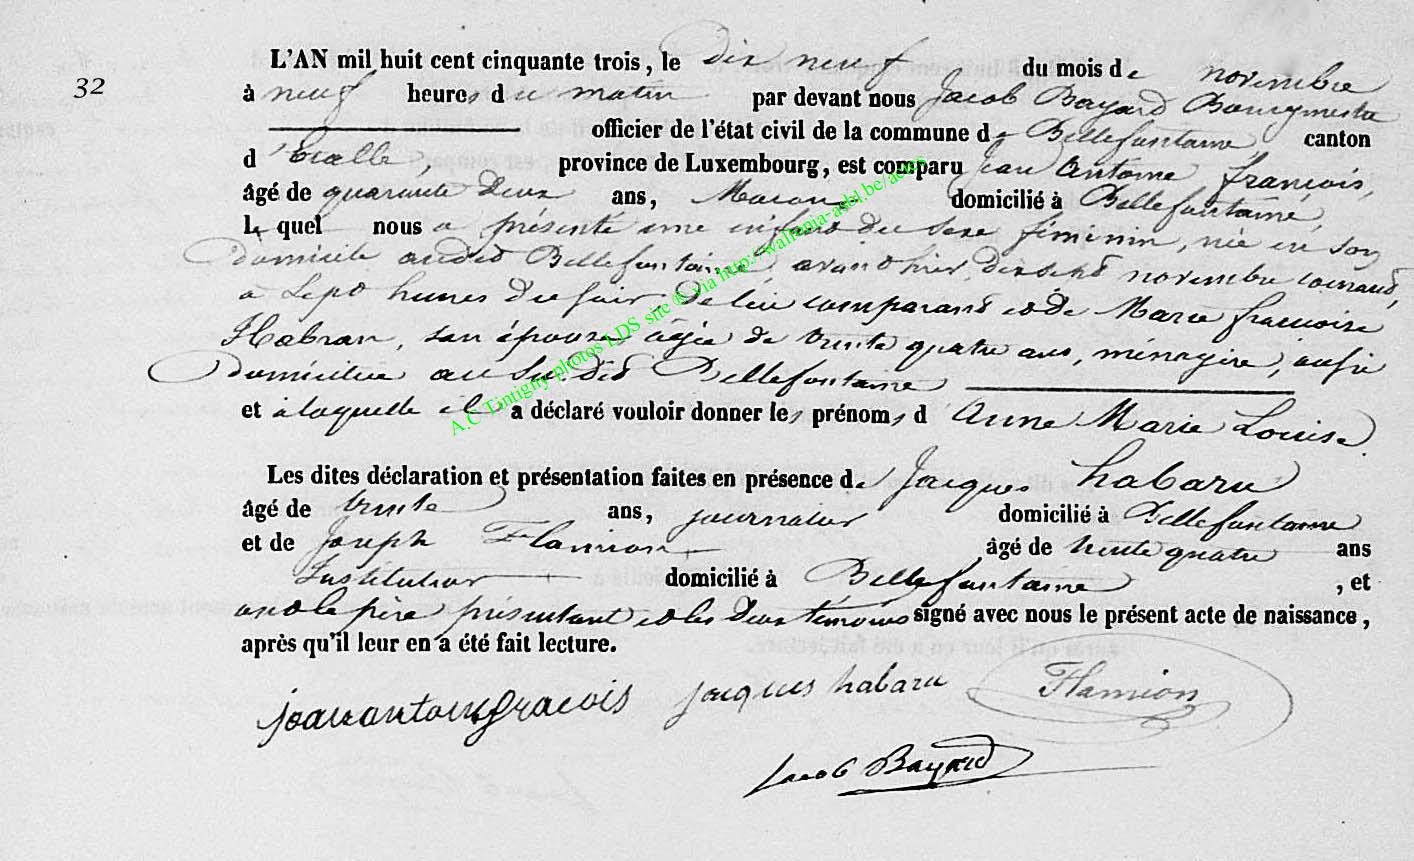 32
L'AN mil huit cent cinquante trois, le Dix neuf du mois de novembre
à neuf heures du matin par devant nous Jacob Bayard Bourgmestre
officier de l'état civil de la commune de Bellefontaine canton
d'Etalle, province de Luxembourg, est comparu Jean Antoine François,
âgé de quarante deux ans, Maçon domicilié à Bellefontaine,
Lequel nous a présenté une enfant du sexe féminin, née en son
Domicile audit Bellefontaine, avant hier, dix sept novembre courant,
à sept heures du soir, de lui comparant et de Marie françoise
Habran, son épouse âgée de trente quatre ans, ménagère, aussi
Domiciliée au susdit Bellefontaine
et à laquelle il a déclaré vouloir donner les prénoms d'Anne Marie Louise
Les dites déclaration et présentation faites en présence de Jacques habaru
âgé de trente ans, journalier domicilié à Bellefontaine
et de Joseph Flamion âgé de trente quatre ans
Instituteur domicilié à Bellefontaine, et
ont le père présentant et les deux témoins signé avec nous le présent acte de naissance,
après qu'il leur en a été fait lecture.
jean antoin fracois jacques habaru Flamion
Jacob Bayard
A.C Tintigny photos LDS site ® via http://wallonia-asbl.be/actes